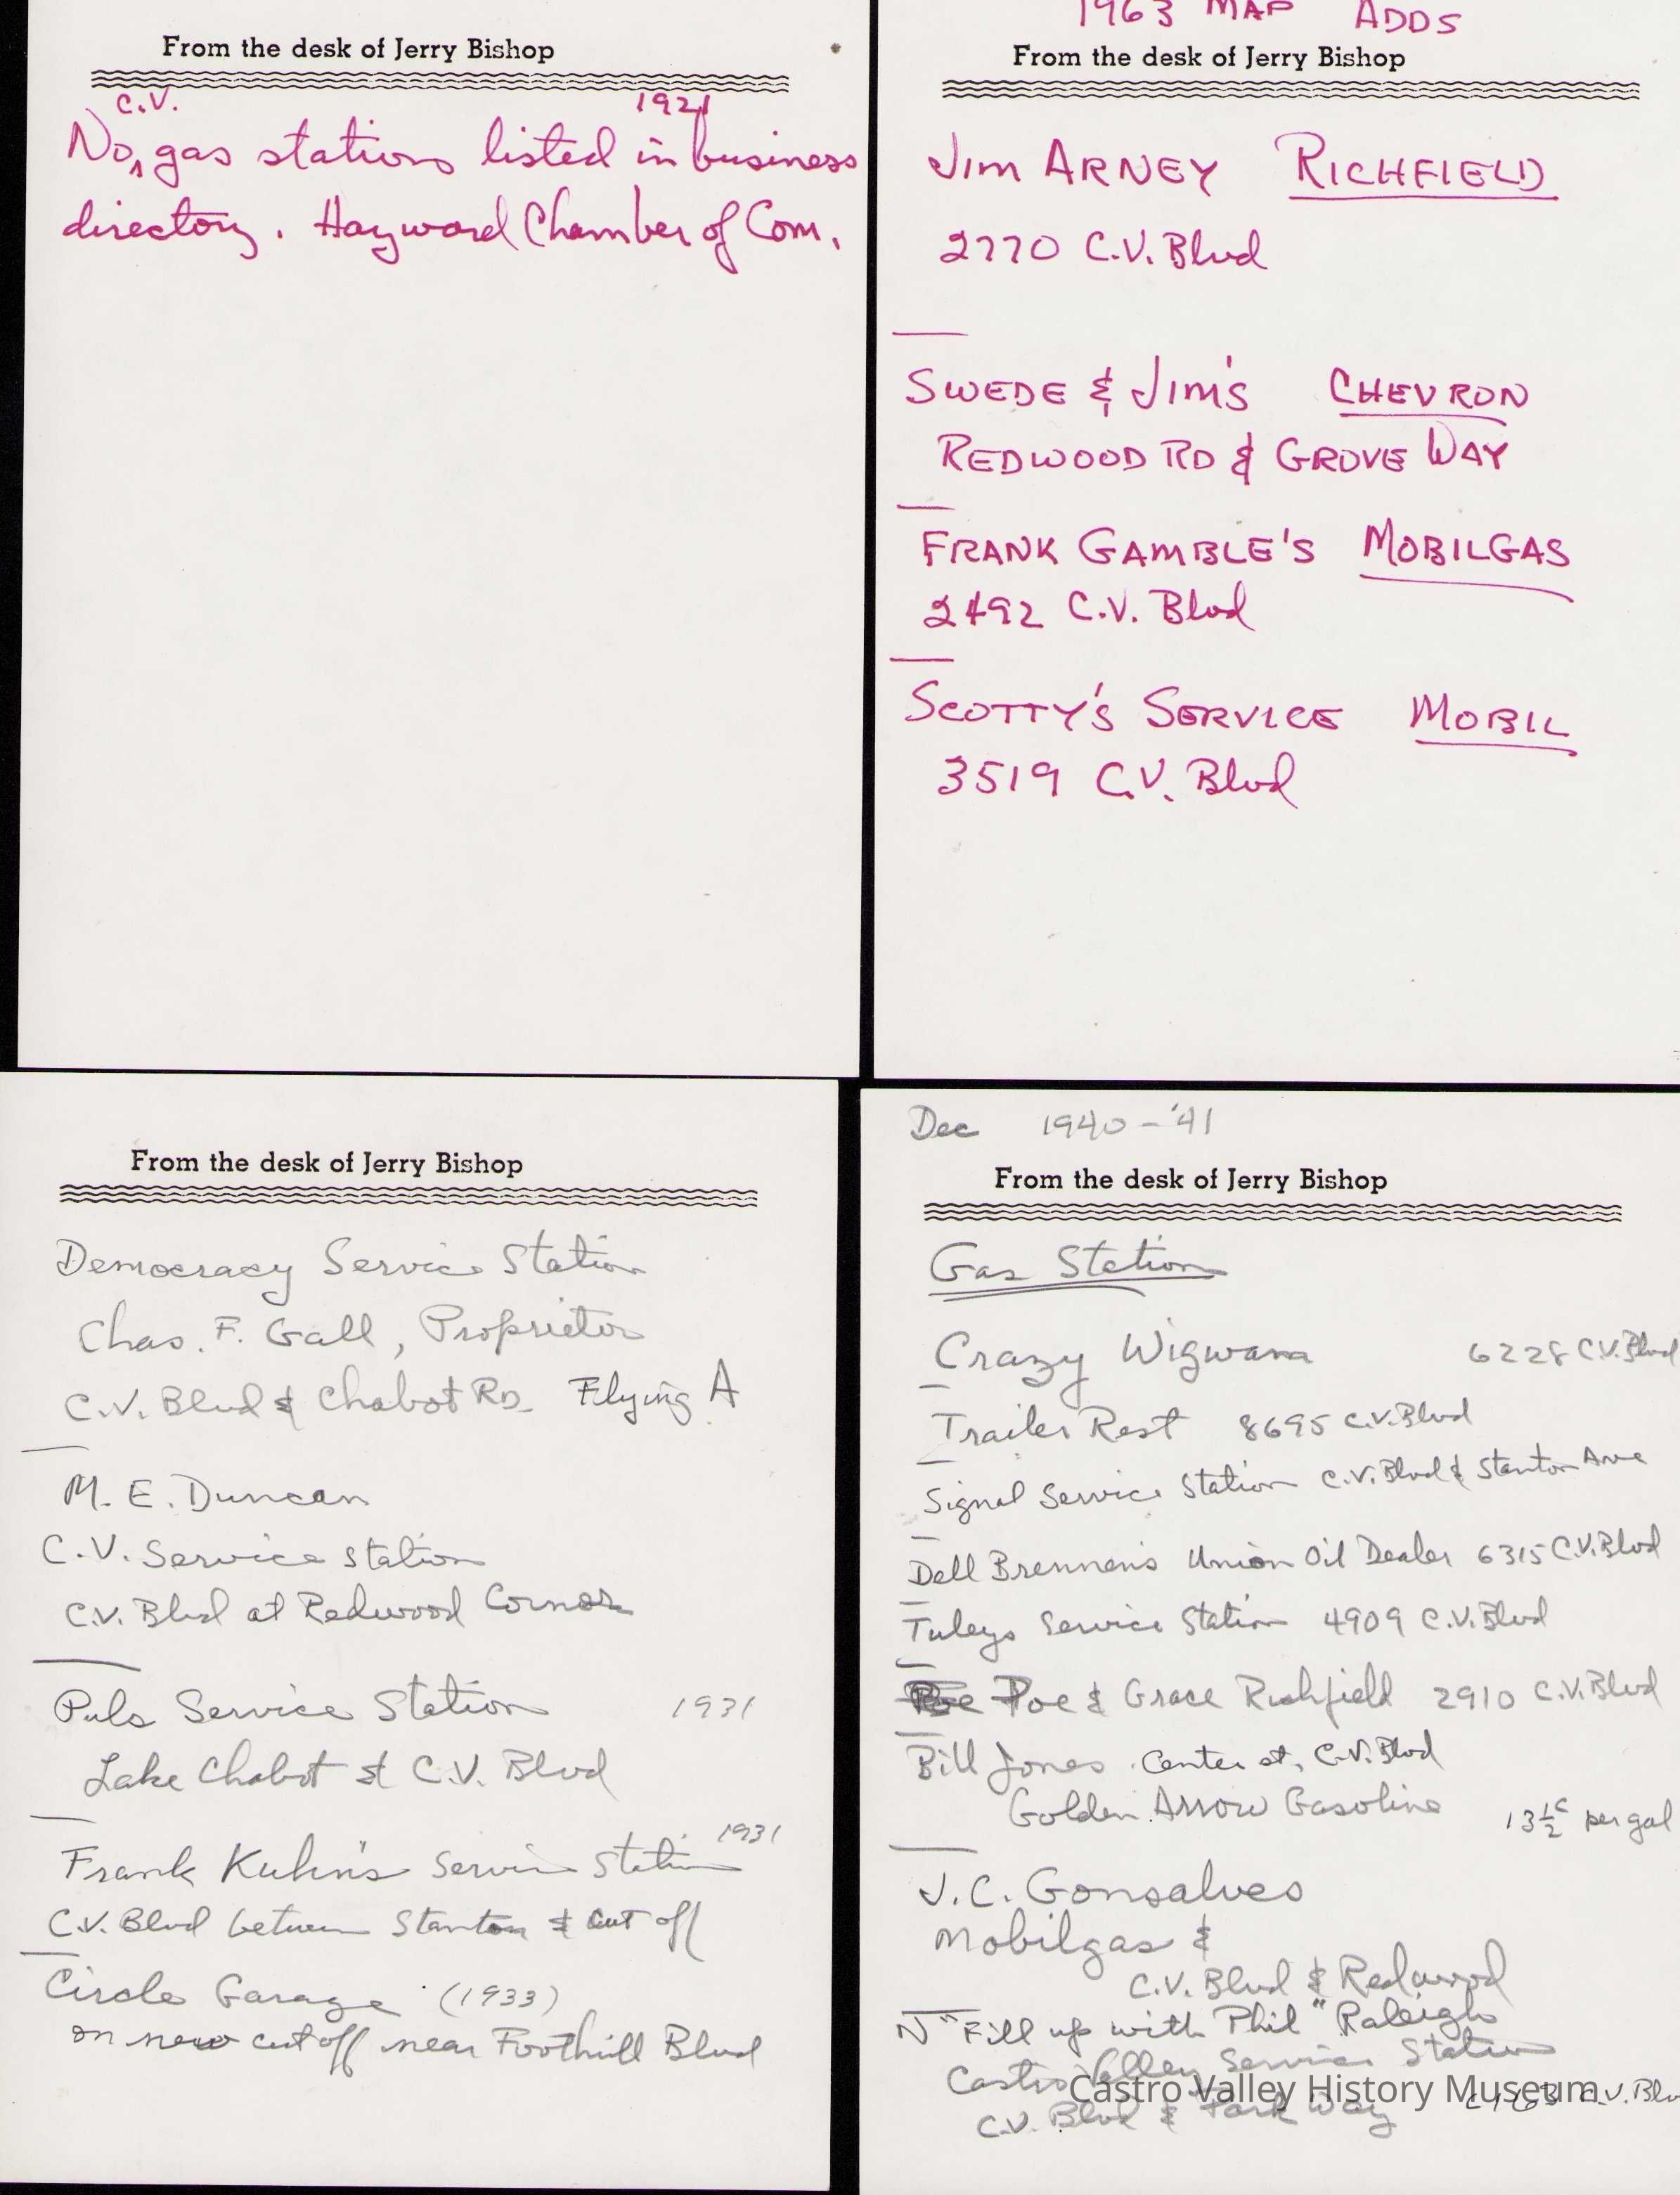 From the desk of Jerry Bishop
C.V. 1921
No, gas stations listed in business
directory. Hayward Chamber of Com.
1963 MAP ADDS
From the desk of Jerry Bishop
JIM ARNEY RICHFIELD
2770 C.V. Blvd
SWEDE & JIM'S CHEVRON
REDWOOD RD & GROVE WAY
FRANK GAMBLE'S MOBILGAS
2492 C.V. Blvd
SCOTTY'S SERVICE MOBIL
3519 C.V. Blvd
From the desk of Jerry Bishop
Democracy Service Station
Chas. F. Gall, Proprietor
C.V. Blvd & Chabot Rd. Flying A
M. E. Duncan
C.V. Service Station
C.V. Blvd at Redwood Corner
Puls Service Station 1931
Lake Chabot & C.V. Blvd
Frank Kuhn's Service Station 1931
C.V. Blvd between Stanton & Cut off
Circle Garage (1933)
on new cutoff near Foothill Blvd
Dec 1940-'41
From the desk of Jerry Bishop
Gas Station
Crazy Wigwam 6228 C.V. Blvd
Trailer Rest 8695 C.V. Blvd
Signal Service Station C.V. Blvd & Stanton Ave
Dell Brennen's Union Oil Dealer 6315 C.V. Blvd
Tuleys Service Station 4909 C.V. Blvd
Poe & Grace Richfield 2910 C.V. Blvd
Bill Jones Center st, C.V. Blvd
Golden Arrow Gasoline 13½¢ per gal
J.C. Gonsalves
Mobilgas &
C.V. Blvd & Redwood
N "Fill up with Phil" Raleigh
Castro Valley Service Station
C.V. Blvd & Park Way C.V. Blv
Castro Valley History Museum